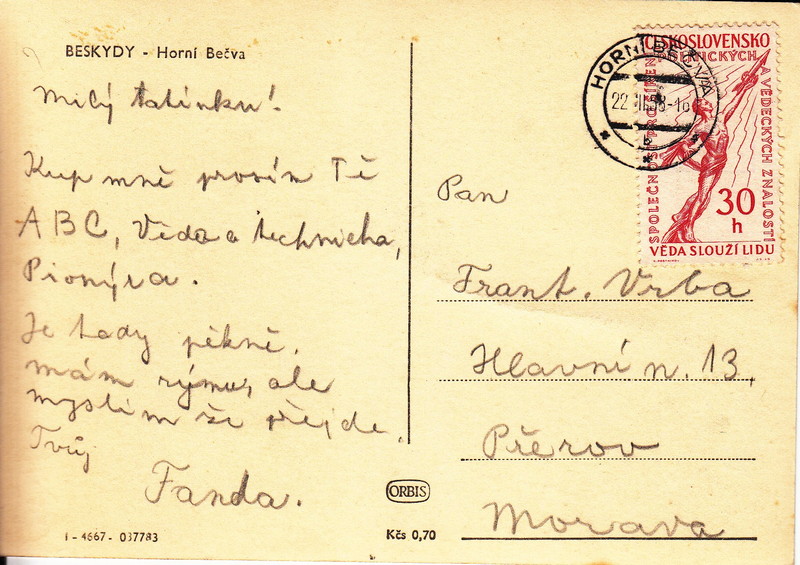 BESKYDY - Horní Bečva
Milý tatínku!
Kup mně prosím Tě
ABC, Věda a technicka,
Pionýra.
Je tady pěkně,
mám rýmu, ale
myslím že přejde.
Tvůj
Fanda.
1-4667-037783
ORBIS
Kčs 0,70
HORNÍ BEČVA
22
58-18
b
ČESKOSLOVENSKO
SPOLEČNOST PRO ŠÍŘENÍ
POLITICKÝCH
A VĚDECKÝCH ZNALOSTÍ
30
h
VĚDA SLOUŽÍ LIDU
Pan
Frant. Vrba
Hlavní n. 13,
Přerov
Morava